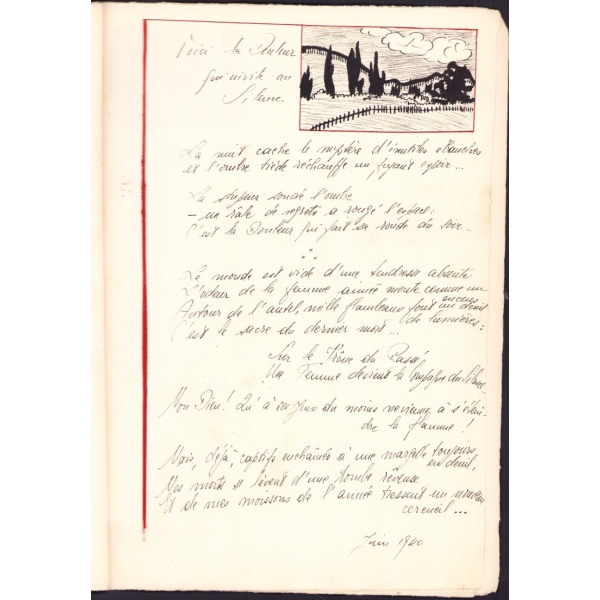 Voici la Douleur
qui invite au
Silence
La nuit cache le mystère d'inutiles ébauches
et l'ombre tiède réchauffe un fuyant espoir...
La stupeur sonde l'ombre
— un râle de regrets a rougé l'espace :
C'est la Douleur qui fait sa ronde du soir...
Le monde est vide d'une tendresse absente
L'odeur de la femme aimée monte comme un encens
Autour de l'autel, mille flambeaux font un
de lumières :
C'est le sacre du dernier mort...
Sur le Trône du Passé,
Une Femme devient la du
Mon Dieu ! Qu'à ces du moins ne vienne à s'étein-
dre la flamme !
Mais, déjà, captifs enchaînés à une toujours
en deuil,
Mes morts se lèvent d'une tombe rêveuse
Et de mes moissons de l'année tressent un nouveau
cercueil...
Juin 1940